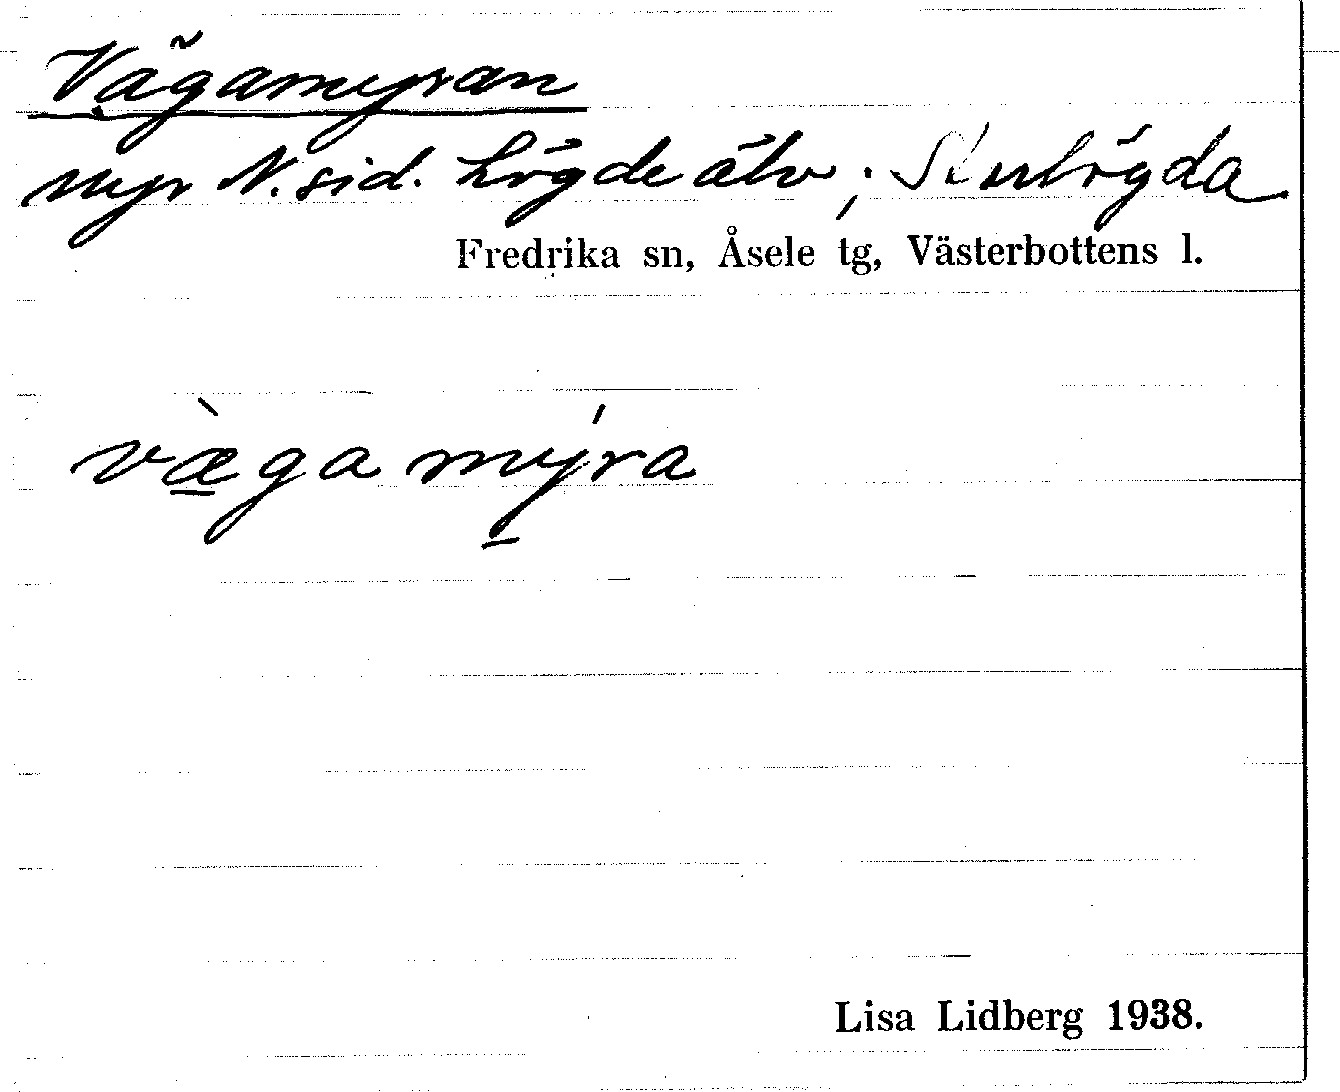 Vägamyran
myr N. sid. Lögde älv; Stenlögda
Fredrika sn, Åsele tg, Västerbottens l.
væ̀gamýra
Lisa Lidberg 1938.